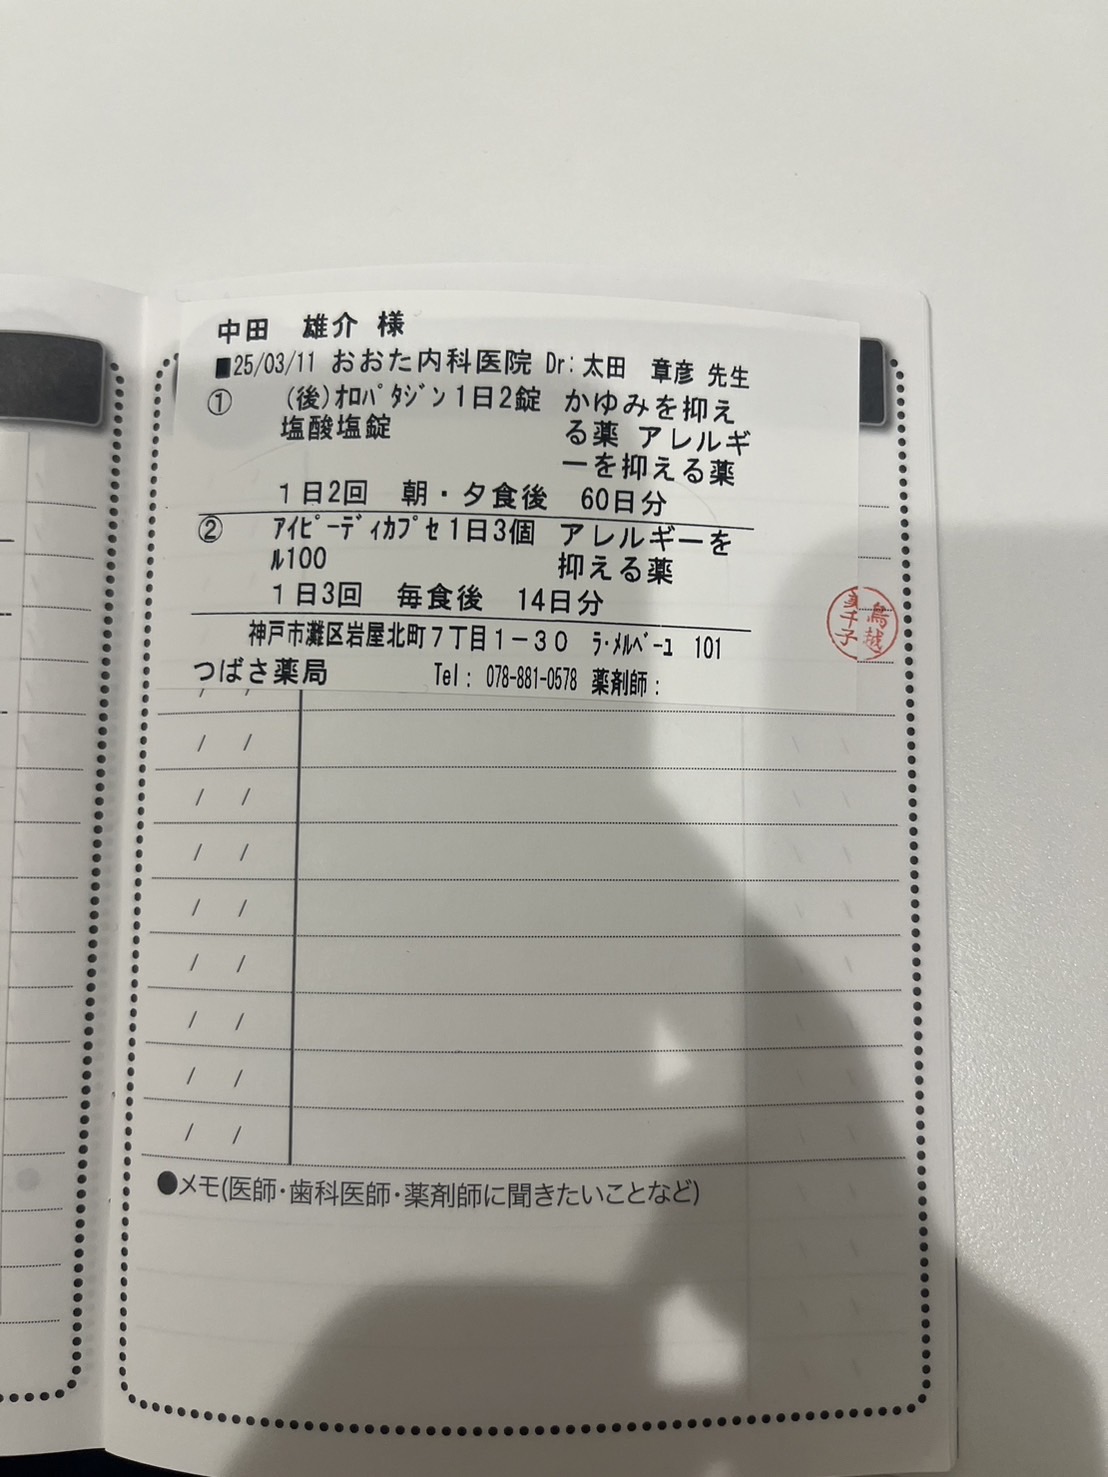 中田　雄介 様
■25/03/11 おおた内科医院 Dr:太田　章彦 先生
① (後)ｵﾛﾊﾟﾀｼﾞﾝ 1日2錠 かゆみを抑え
塩酸塩錠 る薬 アレルギ
ーを抑える薬
1日2回　朝・夕食後　60日分
② ｱｲﾋﾟｰﾃﾞｨｶﾌﾟｾ 1日3個 アレルギーを
ﾙ100 抑える薬
1日3回　毎食後　14日分
神戸市灘区岩屋北町７丁目１－３０　ﾗ･ﾒﾙﾍﾞｰﾕ　101
つばさ薬局 Tel: 078-881-0578 薬剤師:
鳥越
美千子
/ /
/ /
/ /
/ /
/ /
/ /
/ /
/ /
/ /
●メモ(医師･歯科医師･薬剤師に聞きたいことなど)